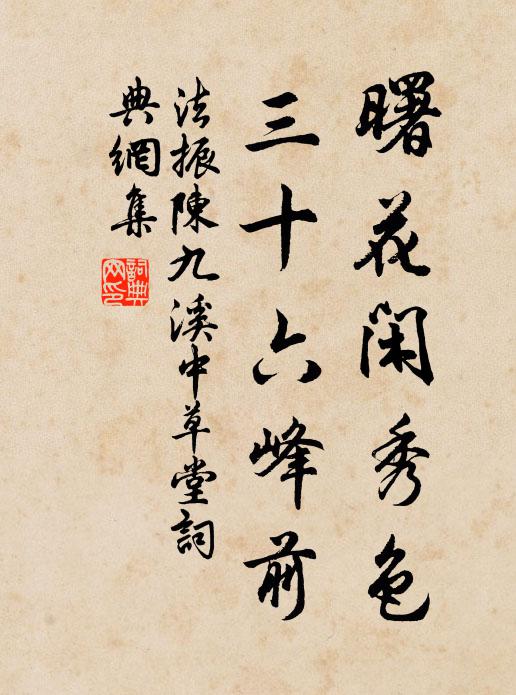 曙花閑秀色
三十六峰前
法振陳九溪中草堂詞
典網集
詞典
网印